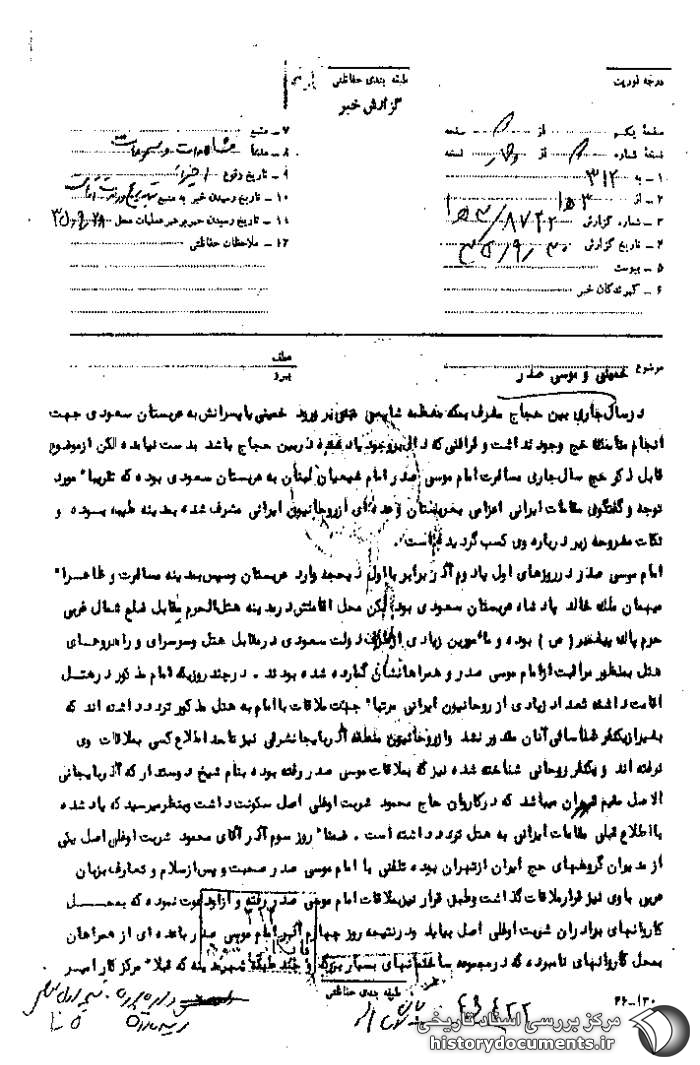 درجه فوریت
طبقه بندی حفاظتی
گزارش خبر
صفحه یکم از صفحه
نسخه شماره از نسخه
۱ـ به ۳۱۲
۲ـ از ۳ ه‍ ۱
۳ـ شماره گزارش ۸۷۴۲/ ۳ ه‍ ۱
۴ـ تاریخ گزارش
۵ـ پیوست
۶ـ گیرندگان خبر
۷ـ منبع
۸ـ منشأ مشاهدات و مسموعات
۹ـ تاریخ وقوع اخیراً
۱۰ـ تاریخ رسیدن خبر به منبع
۱۱ـ تاریخ رسیدن خبر به رهبر عملیات محل
۱۲ـ ملاحظات حفاظتی
موضوع خمینی و موسی صدر
عطف
پیرو
در سال جاری بین حجاج مشرف بمکه معظمه شایعه‌ای مبنی بر ورود خمینی یا پسرانش به عربستان سعودی جهت
انجام مناسک حج وجود نداشت و قرائنی که دال بر وجود یاد شده در بین حجاج باشد بدست نیامده لکن از موضوع
قابل ذکر حج سال جاری مسافرت امام موسی صدر امام شیعیان لبنان به عربستان سعودی بوده که تقریبا" مورد
توجه و گفتگوی مقامات ایرانی اعزامی بعربستان و عده ای از روحانیون ایرانی مشرف شده بمدینه طیبه بوده و
نکات مشروحه زیر درباره وی کسب گردیده است.
امام موسی صدر در روزهای اول یا دوم آذر برابر با اول ذیحجه وارد عربستان وسپس بمدینه مسافرت و ظاهرا"
میهمان ملک خالد پادشاه عربستان سعودی بود لکن محل اقامتش در مدینه هتل الحرم مقابل ضلع شمال غربی
حرم پاک پیغمبر (ص) بوده و مأمورین زیادی از طرف دولت سعودی در مقابل هتل وسرسرای و راهروهای
هتل بمنظور مراقبت از امام موسی صدر و همراهانشان گمارده شده بودند . در چند روزیکه امام مذکور در هتل
اقامت داشته تعداد زیادی از روحانیون ایرانی مرتبا" جهت ملاقات با امام به هتل مذکور تردد داشته اند که
بغیر از یکنفر شناسائی آنان مقدور نشد و از روحانیون منطقه آذربایجانشرقی نیز تا حد اطلاع کسی بملاقات وی
نرفته اند و یکنفر روحانی شناخته شده نیز که بملاقات موسی صدر رفته بوده بنام شیخ دوستدار که آذربایجانی
الاصل مقیم تهران میباشد که در کاروان حاج محمود شربت اوغلی اصل سکونت داشت وبنظر میرسید که یاد شده
با اطلاع قبلی مقامات ایرانی به هتل تردد داشته است . ضمنا" روز سوم آذر آقای محمود شربت اوغلی اصل یکی
از مدیران گروههای حج ایران از تهران بوده تلفنی با امام موسی صدر صحبت و پس از سلام و تعارف بزبان
عربی با وی نیز قرار ملاقات گذاشت وطبق قرار نیز بملاقات امام موسی صدر رفته و از او دعوت نموده که بمحل
کاروانهای برادران شربت اوغلی اصل بیاید ودر نتیجه روز چهارم آذر امام موسی صدر با عده ای از همراهان
بمحل کاروانهای نامبرده که در مجموعه ساختمانهای بسیار بزرگ و چند طبقه شهر مدینه که قبلا" مرکز کار امیر
طبقه بندی حفاظتی
۳۶-۱۲۰
مرکز بررسی اسناد تاریخی
historydocuments.ir